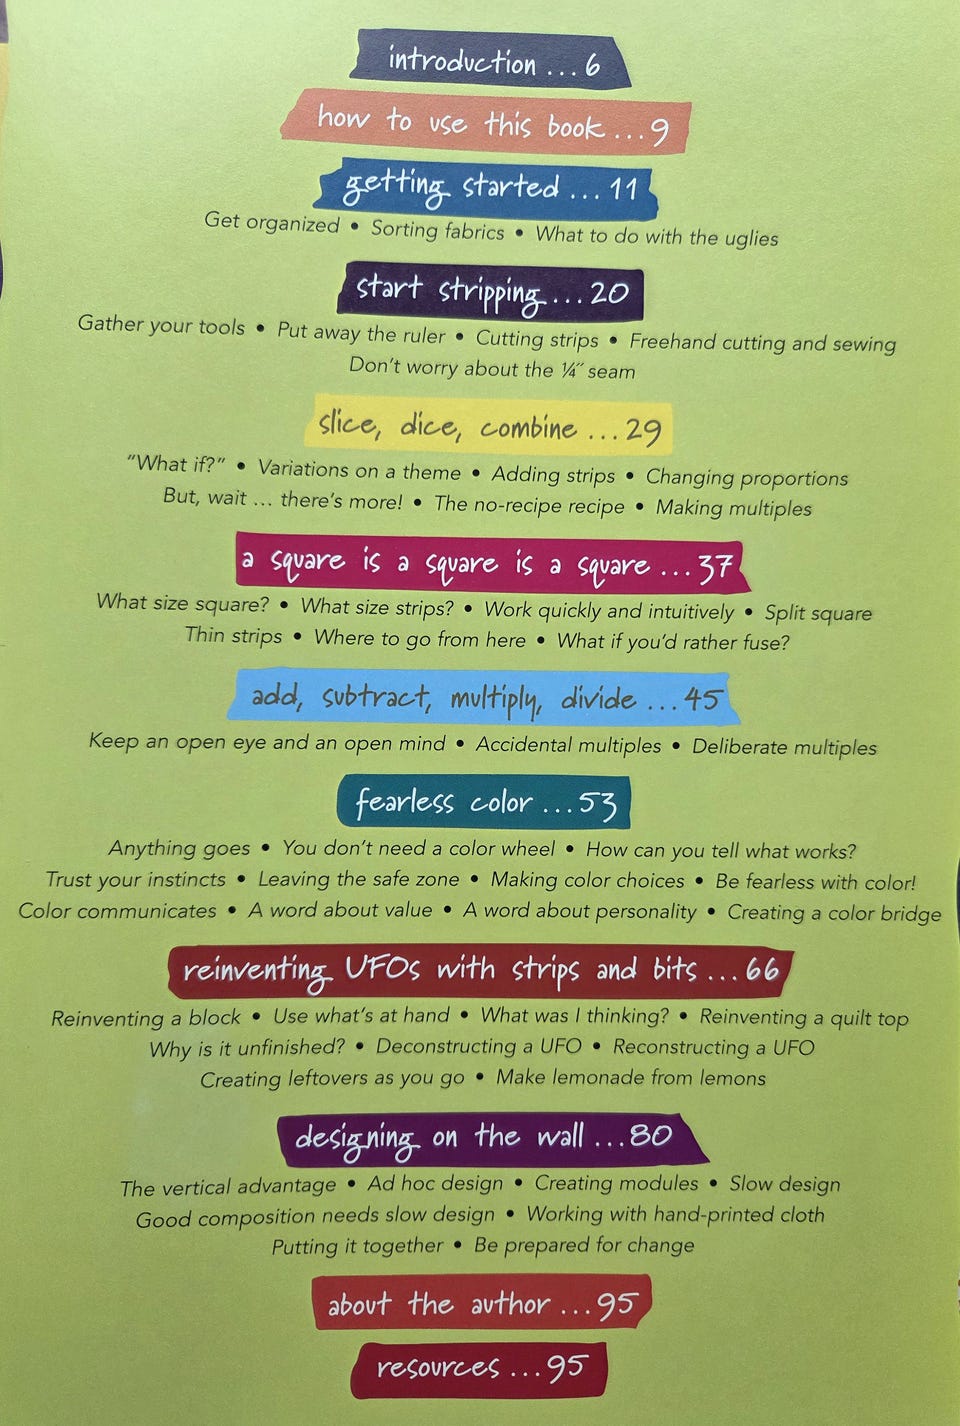 introduction ... 6
how to use this book ... 9
getting started ... 11
Get organized • Sorting fabrics • What to do with the uglies
start stripping ... 20
Gather your tools • Put away the ruler • Cutting strips • Freehand cutting and sewing
Don't worry about the ¼˝ seam
slice, dice, combine ... 29
“What if?” • Variations on a theme • Adding strips • Changing proportions
But, wait ... there's more! • The no-recipe recipe • Making multiples
a square is a square is a square ... 37
What size square? • What size strips? • Work quickly and intuitively • Split square
Thin strips • Where to go from here • What if you'd rather fuse?
add, subtract, multiply, divide ... 45
Keep an open eye and an open mind • Accidental multiples • Deliberate multiples
fearless color ... 53
Anything goes • You don't need a color wheel • How can you tell what works?
Trust your instincts • Leaving the safe zone • Making color choices • Be fearless with color!
Color communicates • A word about value • A word about personality • Creating a color bridge
reinventing UFOs with strips and bits ... 66
Reinventing a block • Use what's at hand • What was I thinking? • Reinventing a quilt top
Why is it unfinished? • Deconstructing a UFO • Reconstructing a UFO
Creating leftovers as you go • Make lemonade from lemons
designing on the wall ... 80
The vertical advantage • Ad hoc design • Creating modules • Slow design
Good composition needs slow design • Working with hand-printed cloth
Putting it together • Be prepared for change
about the author ... 95
resources ... 95